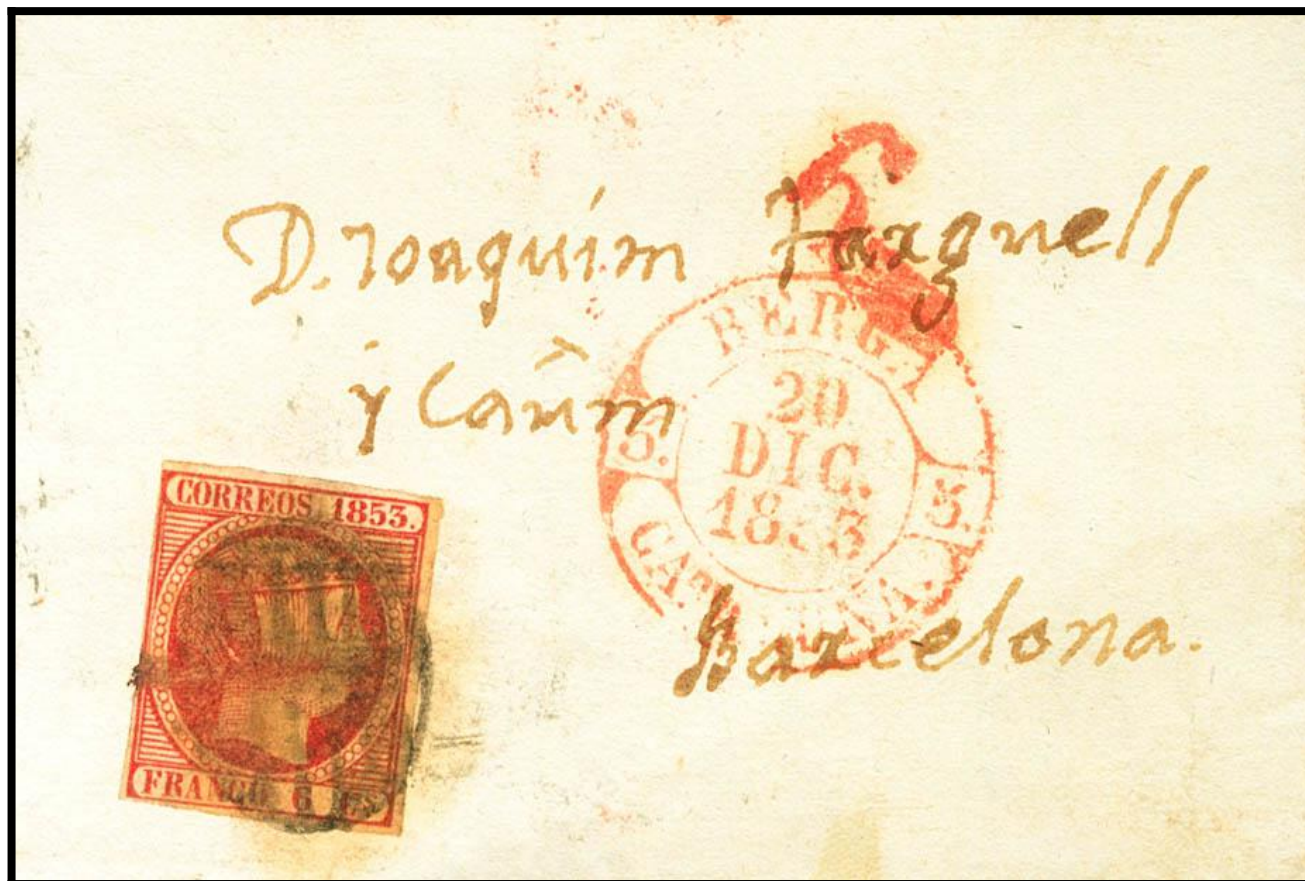 D. Joaquim Farguell
y Casim
BERGA
20
DIC.
1853
5.
5.
CATALUÑA.
Barcelona.
CORREOS 1853.
FRANCO 6